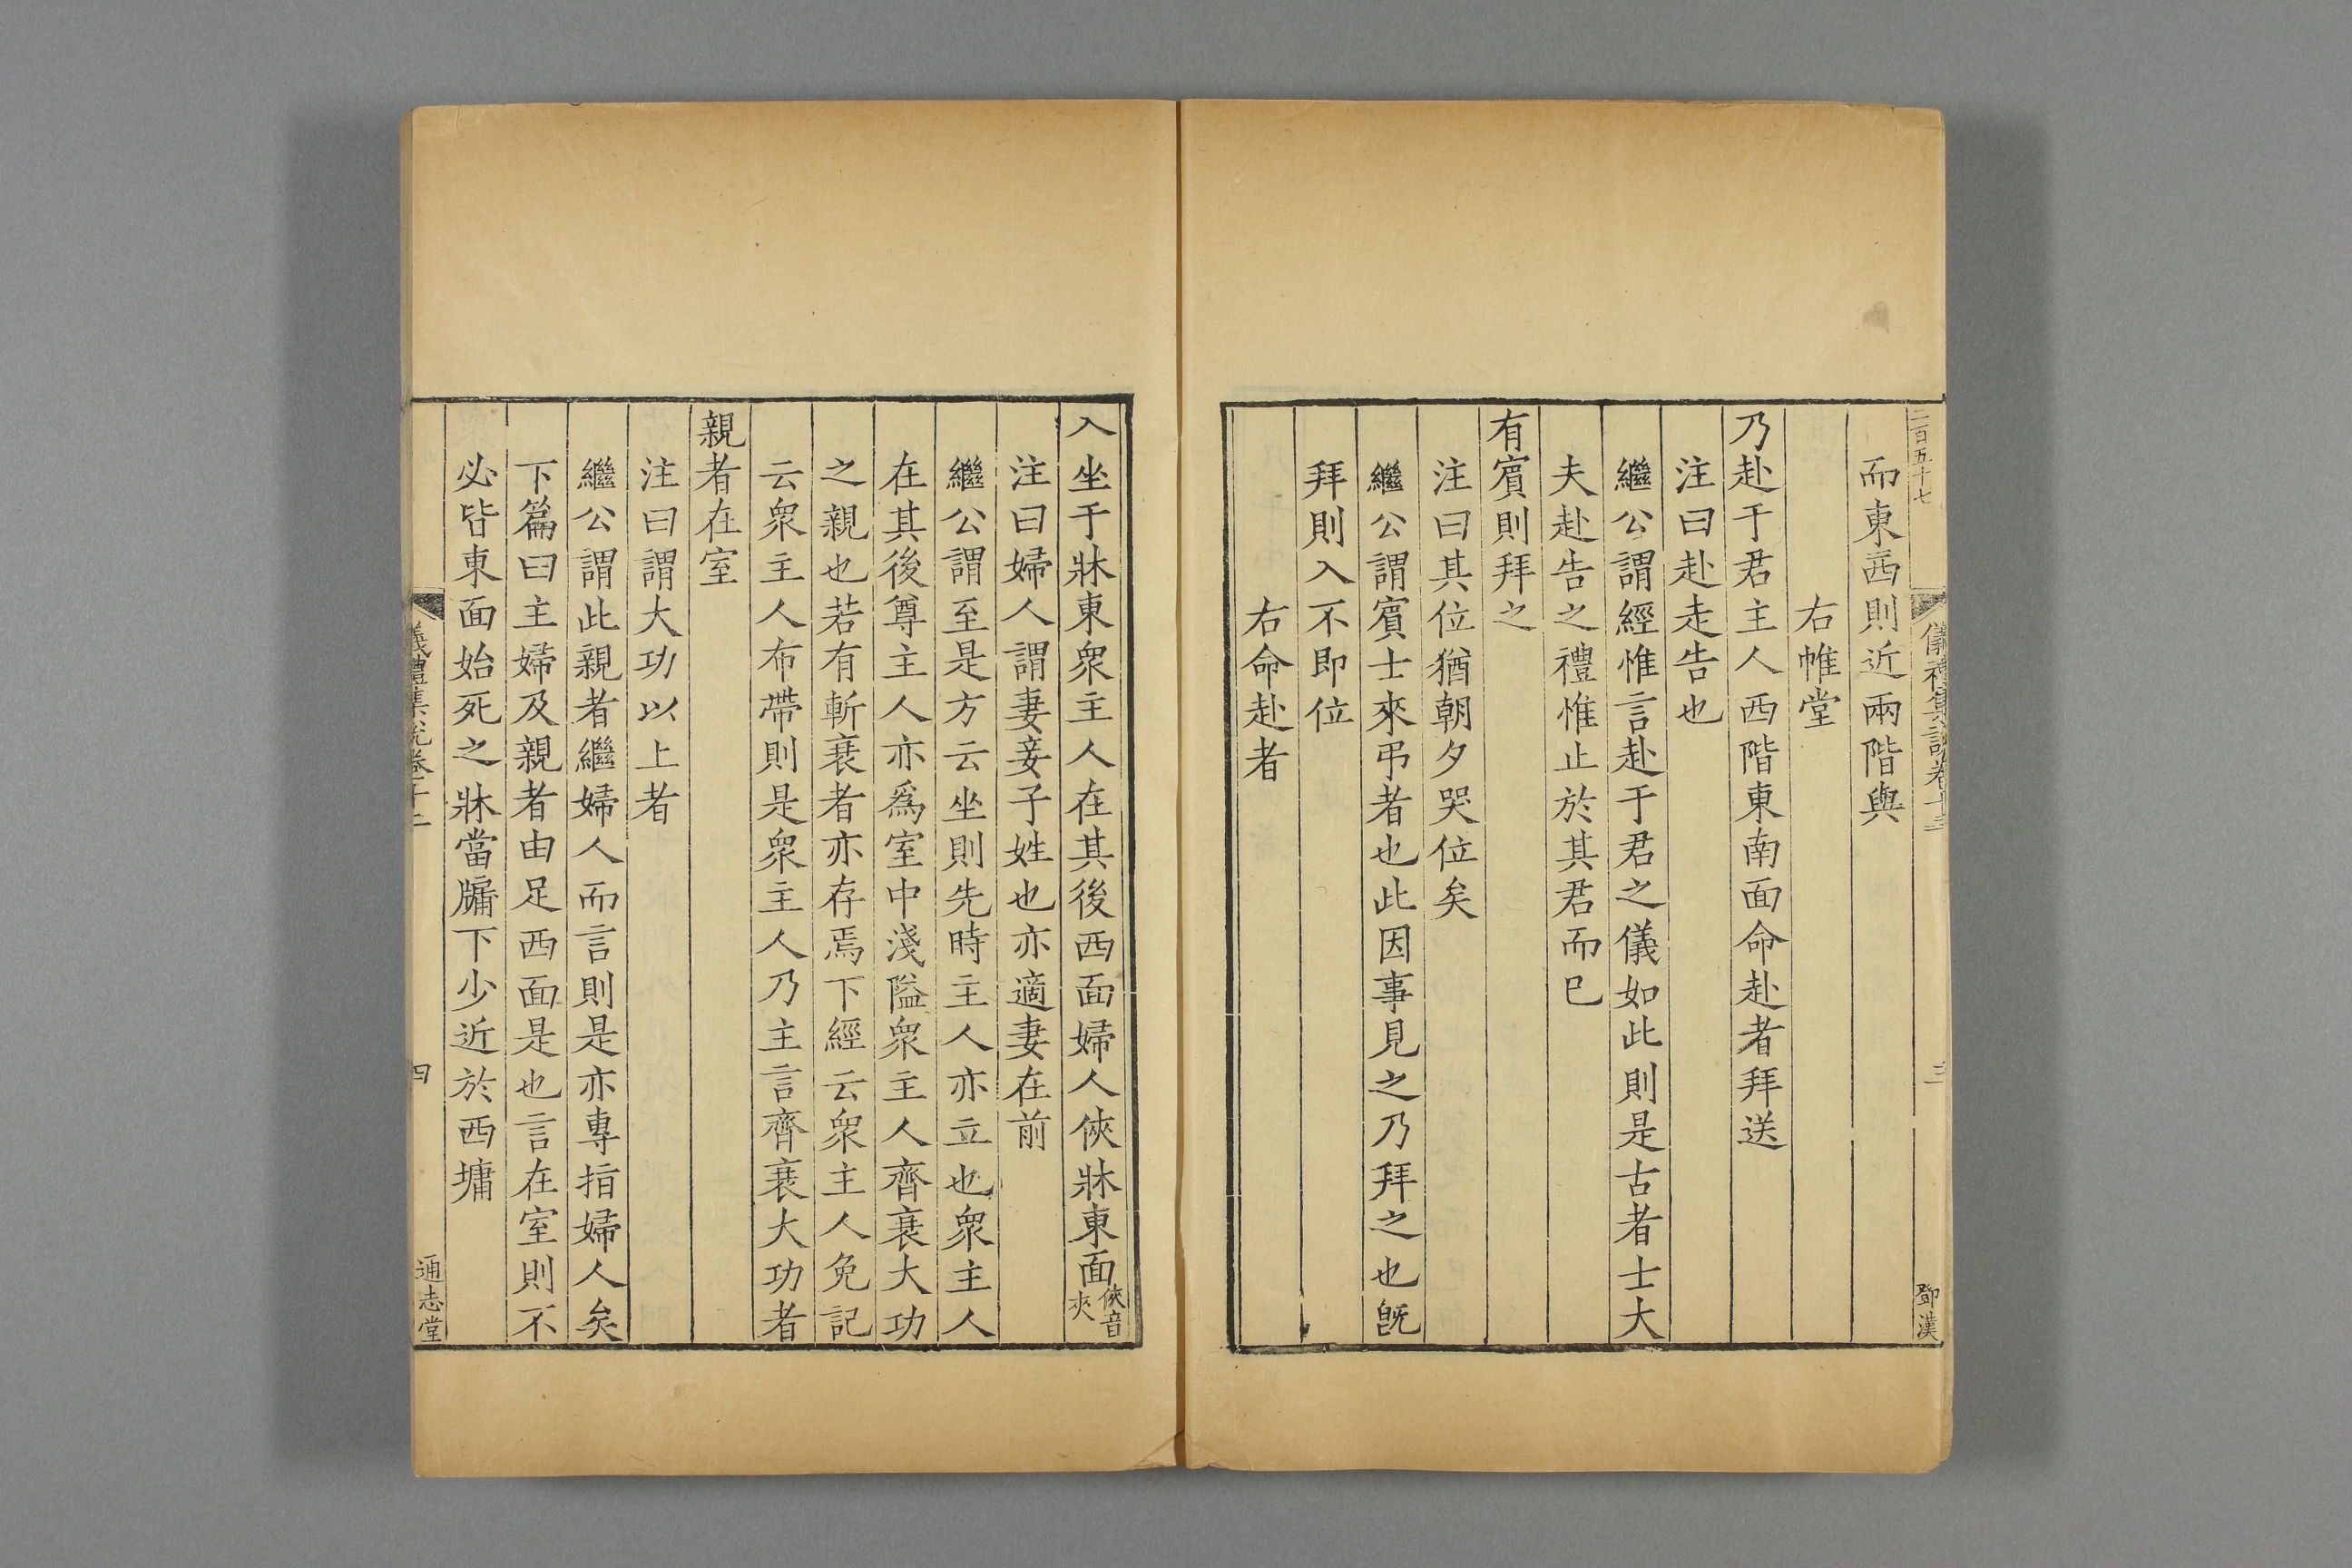 二百五十七
儀禮集說卷十二
三
鄧漢
而東西則近兩階與
右帷堂
乃赴于君主人西階東南面命赴者拜送
注曰赴走告也
繼公謂經惟言赴于君之儀如此則是古者士大
夫赴告之禮惟止於其君而已
有賔則拜之
注曰其位猶朝夕哭位矣
繼公謂賔士來弔者也此因事見之乃拜之也旣
拜則入不即位
右命赴者
入坐于牀東衆主人在其後西面婦人俠牀東面俠音夾
注曰婦人謂妻妾子姓也亦適妻在前
繼公謂至是方云坐則先時主人亦立也衆主人
在其後尊主人亦爲室中淺隘衆主人齊衰大功
之親也若有斬衰者亦存焉下經云衆主人免記
云衆主人布帶則是衆主人乃主言齊衰大功者
親者在室
注曰謂大功以上者
繼公謂此親者繼婦人而言則是亦專指婦人矣
下篇曰主婦及親者由足西面是也言在室則不
必皆東面始死之牀當牖下少近於西墉
儀禮集說卷十二
四
通志堂